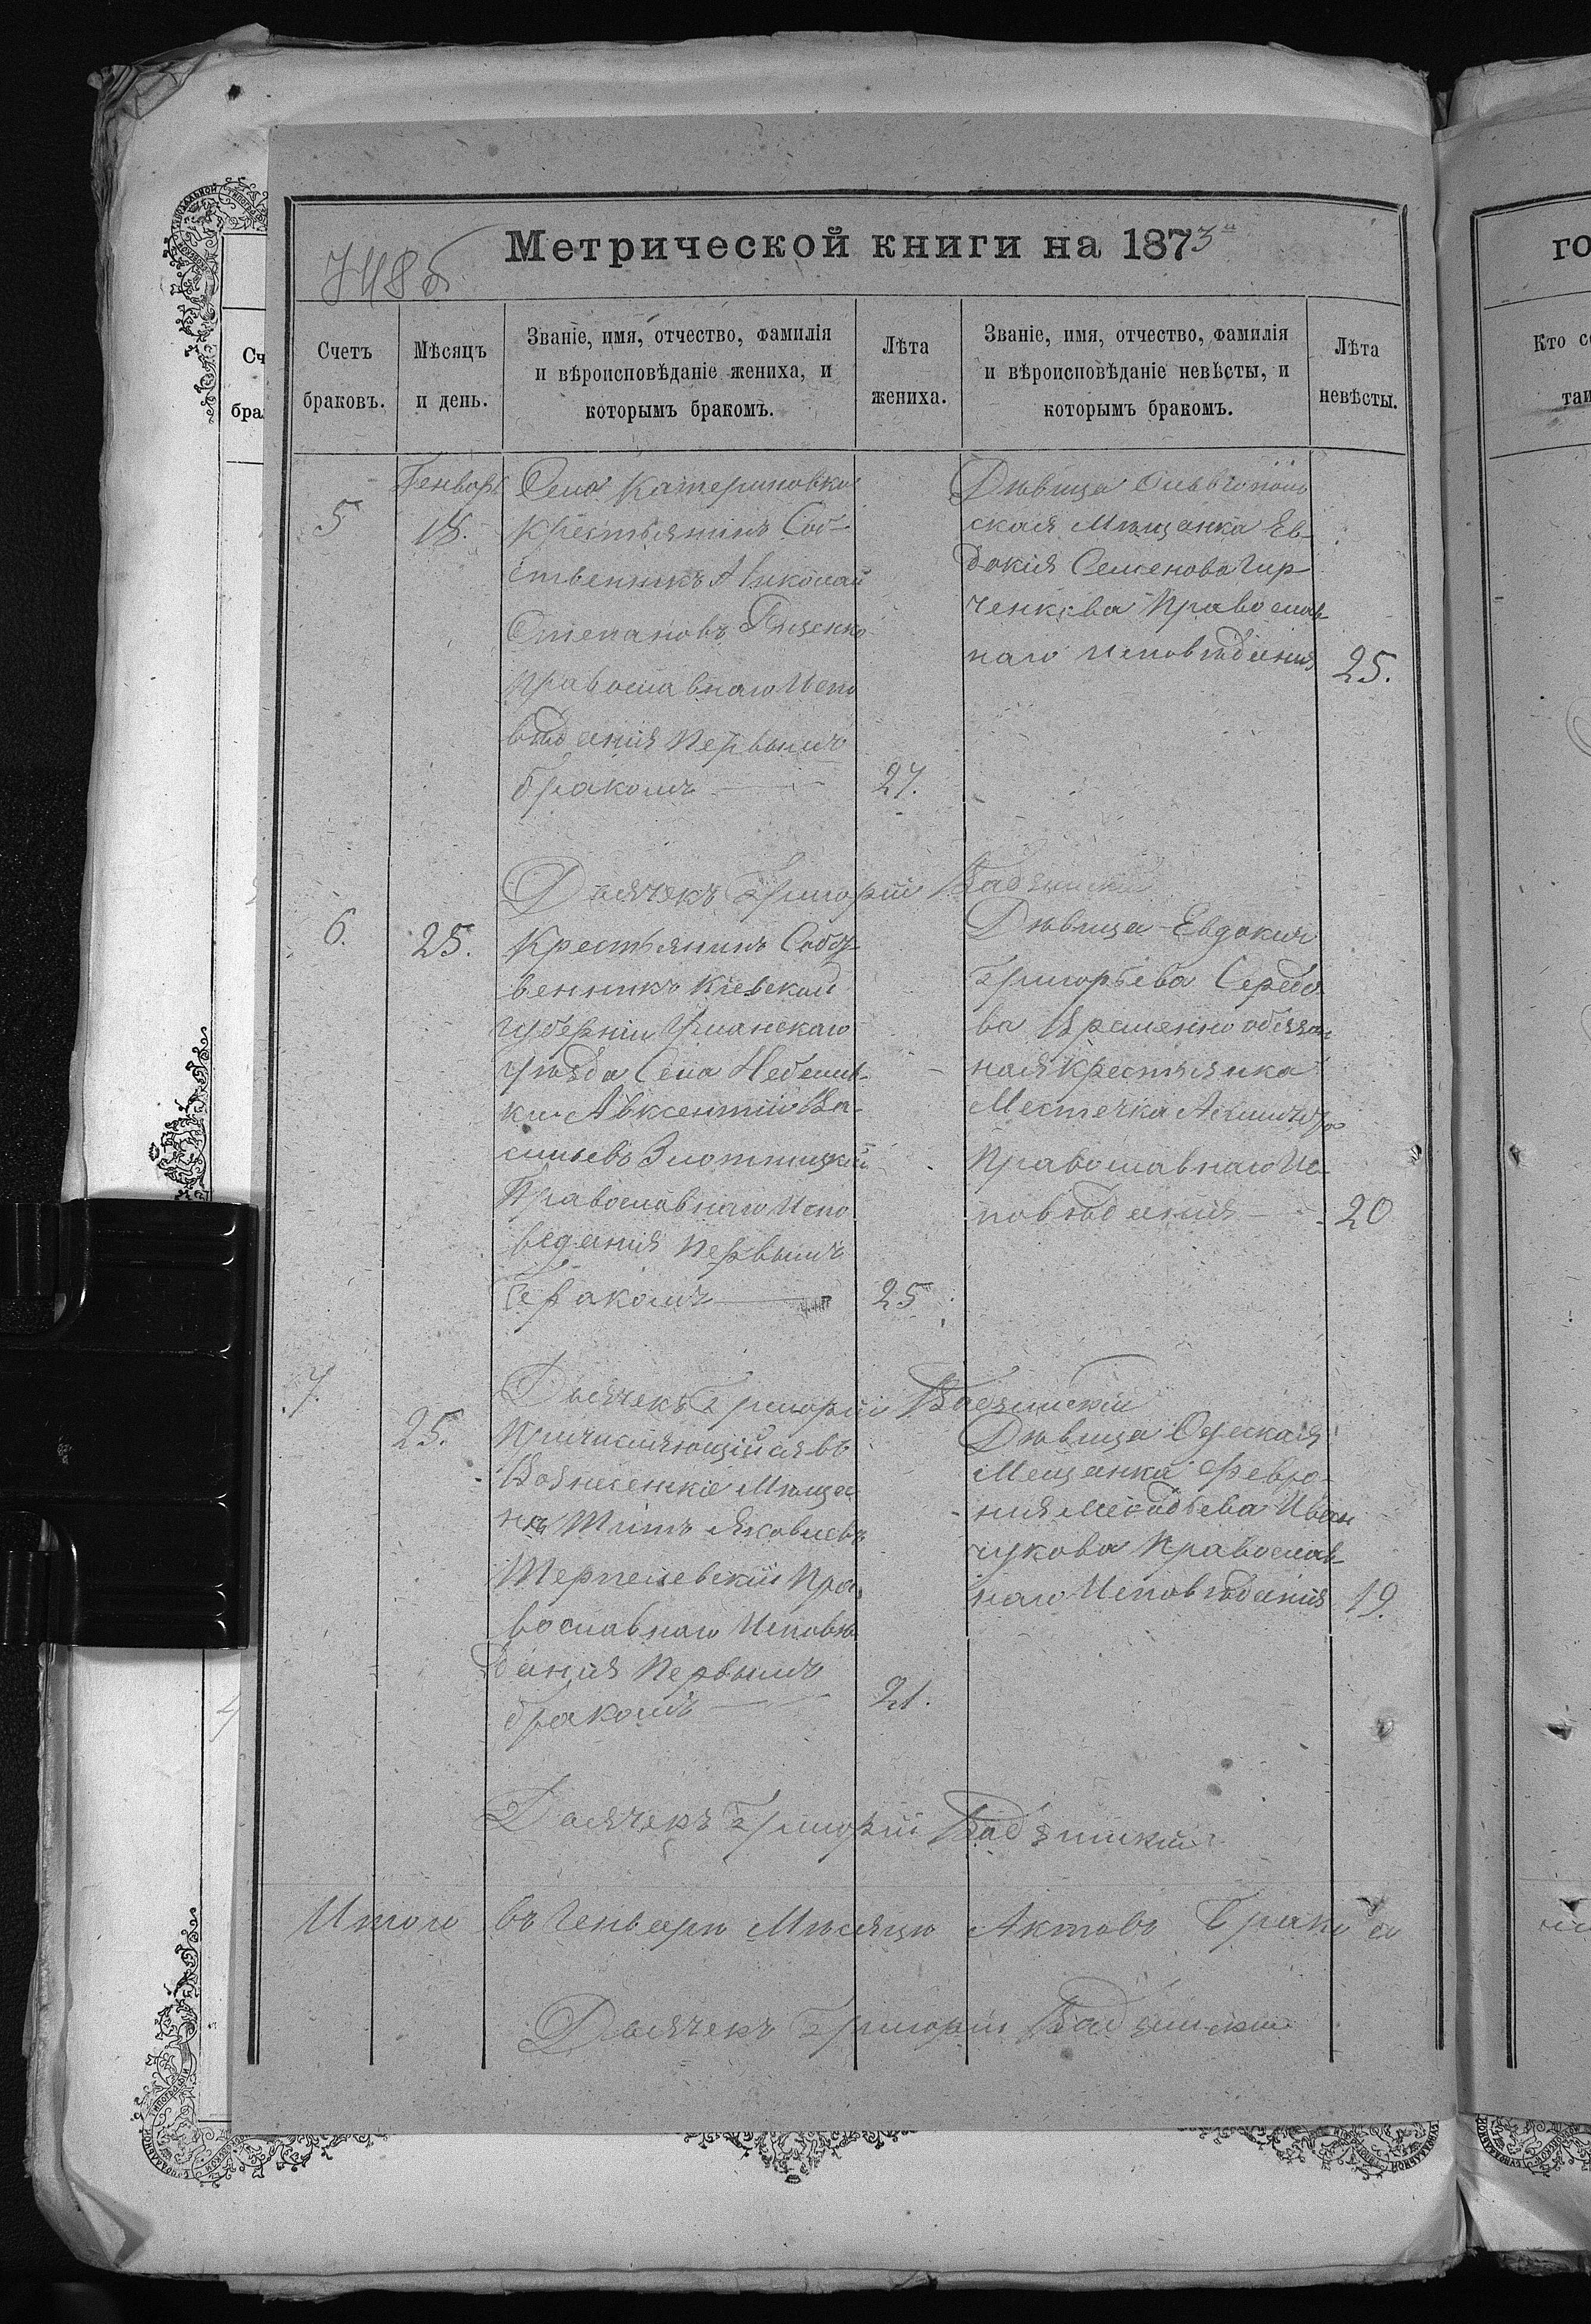 Метрической книги на 1873й
748 б
Счетъ браковъ.
Мѣсяцъ и день.
Званіе, имя, отчество, фамилія
и вѣроисповѣданіе жениха, и
которымъ бракомъ.
Лѣта жениха.
Званіе, имя, отчество, фамилія
и вѣроисповѣданіе невѣсты, и
которымъ бракомъ.
Лѣта невѣсты.
5
Генварь
18.
Села Катериновки
Крестьянинъ Соб-
ственникъ Николай
Степановъ
Православнаго Испо
вѣданія Первымъ
бракомъ
27.
Дѣвица Ольвіополь
ская Мѣщанка Ев-
докія Семенова Гир
ченкова Православ
наго исповѣданія
25.
Дьячекъ Григорій
6.
25.
Крестьянинъ Собст
венникъ Кіевской
губерніи Уманскаго
уѣзда Села Небелив-
ки Авксентій Ва-
сильевъ Злотницкій
Православнаго Испо
веданія Первымъ
Бракомъ
25
Дѣвица Евдокия
Григорьева Середо
ва Временно обязан
ная крестьянка
Местечка
Православнаго Ис-
повѣданія
20
Дьячекъ Григорій
7.
25.
Причисляющійся въ
Вознесенскіе Мѣща
не Титъ Яковлевъ
Терпелевскій Пра
вославнаго Исповѣ
данія Первымъ
бракомъ
21.
Дѣвица Одеская
Мещанка Февро-
нія Мефодьева Иван
чукова Православ-
наго Исповѣданія
19.
Дьячекъ Григорій
Итого въ Генварѣ Мѣсяцѣ Актовъ Брака
Дьячекъ Григорій
го
Кто со
Сч
бра